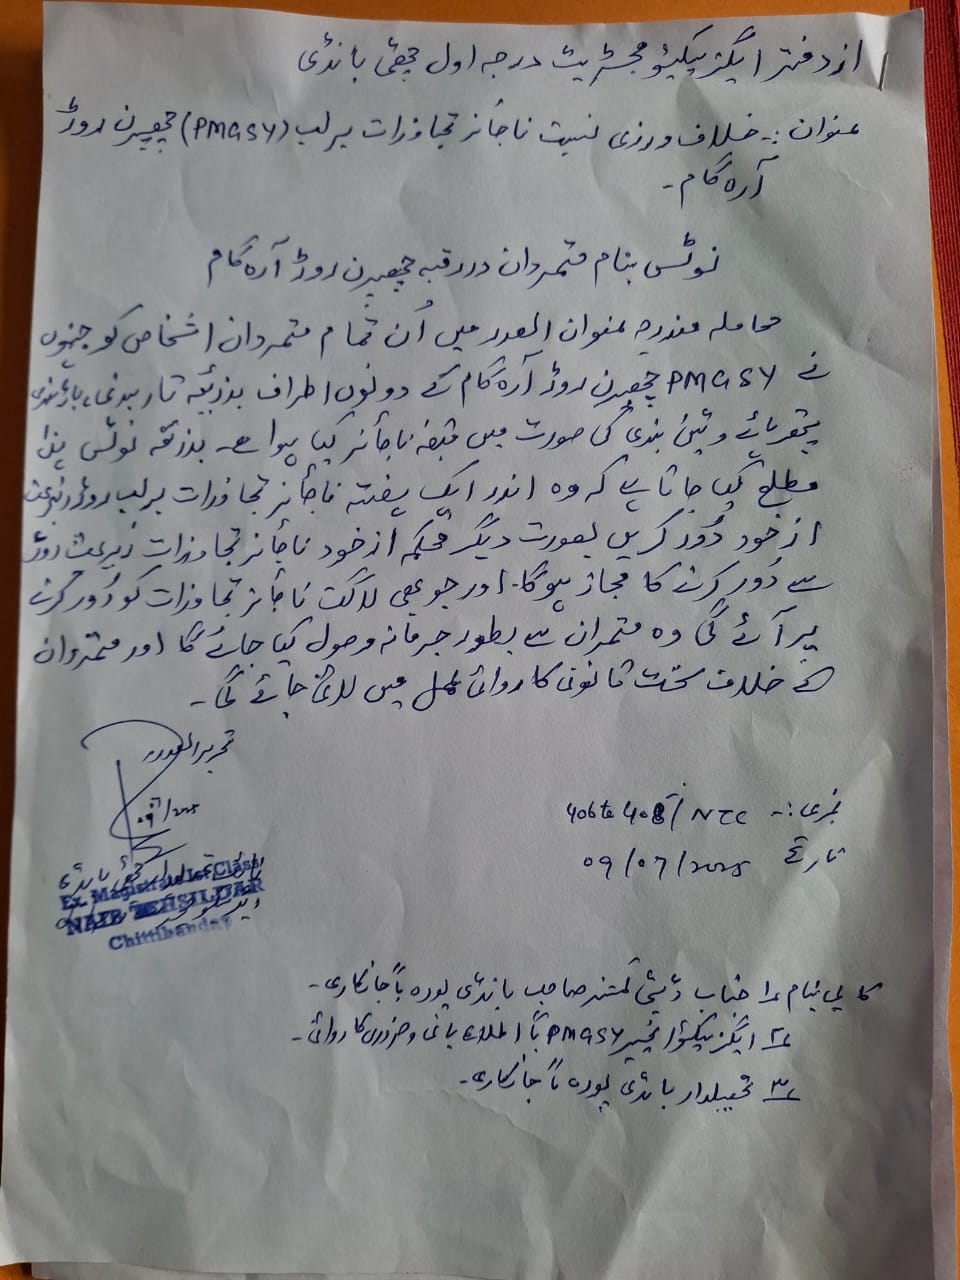 از دفتر ایگزیکیٹو مجسٹریٹ درجہ اول چھٹی بانڈی
عنوان :۔ خلاف ورزی نسبت ناجائز تجاوزات برلب (PMGSY) چھپرن روڈ
آرہ گام ۔
نوٹس بنام متمردان در رقبہ چھپرن روڈ آرہ گام
معاملہ مندرجہ عنوان الصدر میں اُن تمام متمردان اشخاص کو جنہوں
نے PMGSY چھپرن روڈ آرہ گام کے دونوں اطراف بذریعہ تار بندی،
پتھر پائے و ٹین بندی کی صورت میں قبضہ ناجائز کیا ہوا ہے۔ بذریعہ نوٹس ہذا
مطلع کیا جاتا ہے کہ وہ اندر ایک ہفتہ ناجائز تجاوزات برلب روڈ زیربحث
از خود دُور کریں بصورت دیگر محکمہ از خود ناجائز تجاوزات زیربحث روڈ
سے دُور کرنے کا مجاز ہوگا۔ اور جو بھی لاگت ناجائز تجاوزات کو دُور کرنے
پر آئے گی وہ متمران سے بطور جرمانہ وصول کیا جائے گا اور متمردان
کے خلاف سخت قانونی کاروائی عمل میں لائی جائے گی۔
تحریر الصدر
09/07/2025
نمبری :۔ 406 to 408/NTC
تاریخ 09/07/2025
Ex. Magistrate Ist Class
NAIB TEHSILDAR
Chittibanday
کاپی بنام ۱؎ جناب ڈپٹی کمشنر صاحب بانڈی پورہ باًجانکاری۔
۲؎ ایگزیکٹو انجینیر PMGSY باً اطلاع یابی و ضروری کاروائی۔
۳؎ تحصیلدار بانڈی پورہ باً جانکاری۔